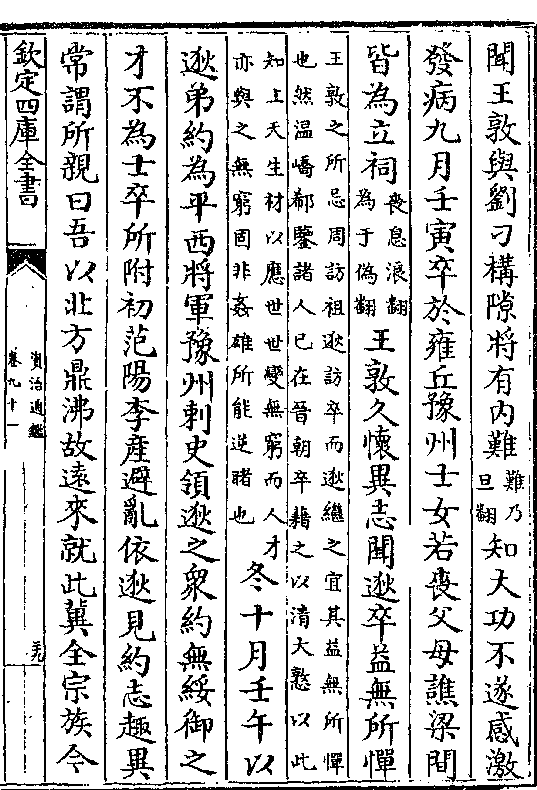 聞王敦與劉刁構隙將有内難難乃旦翻知大功不遂感激
發病九月壬寅卒於雍丘豫州士女若喪父母譙梁間
皆為立祠喪息浪翻為于偽翻王敦久懷異志聞逖卒益無所憚
王敦之所忌周訪祖逖訪卒而逖繼之宜其益無所憚
也然温嶠郗鑒諸人已在晉朝卒藉之以清大憝以此
知上天生材以應世世變無窮而人才
亦與之無窮固非姦雄所能逆睹也
冬十月壬午以
逖弟約為平西將軍豫州刺史領逖之衆約無綏御之
才不為士卒所附初范陽李産避亂依逖見約志趣異
常謂所親曰吾以北方鼎沸故遠來就此冀全宗族今
欽定四庫全書
資治通鑑
卷九十一